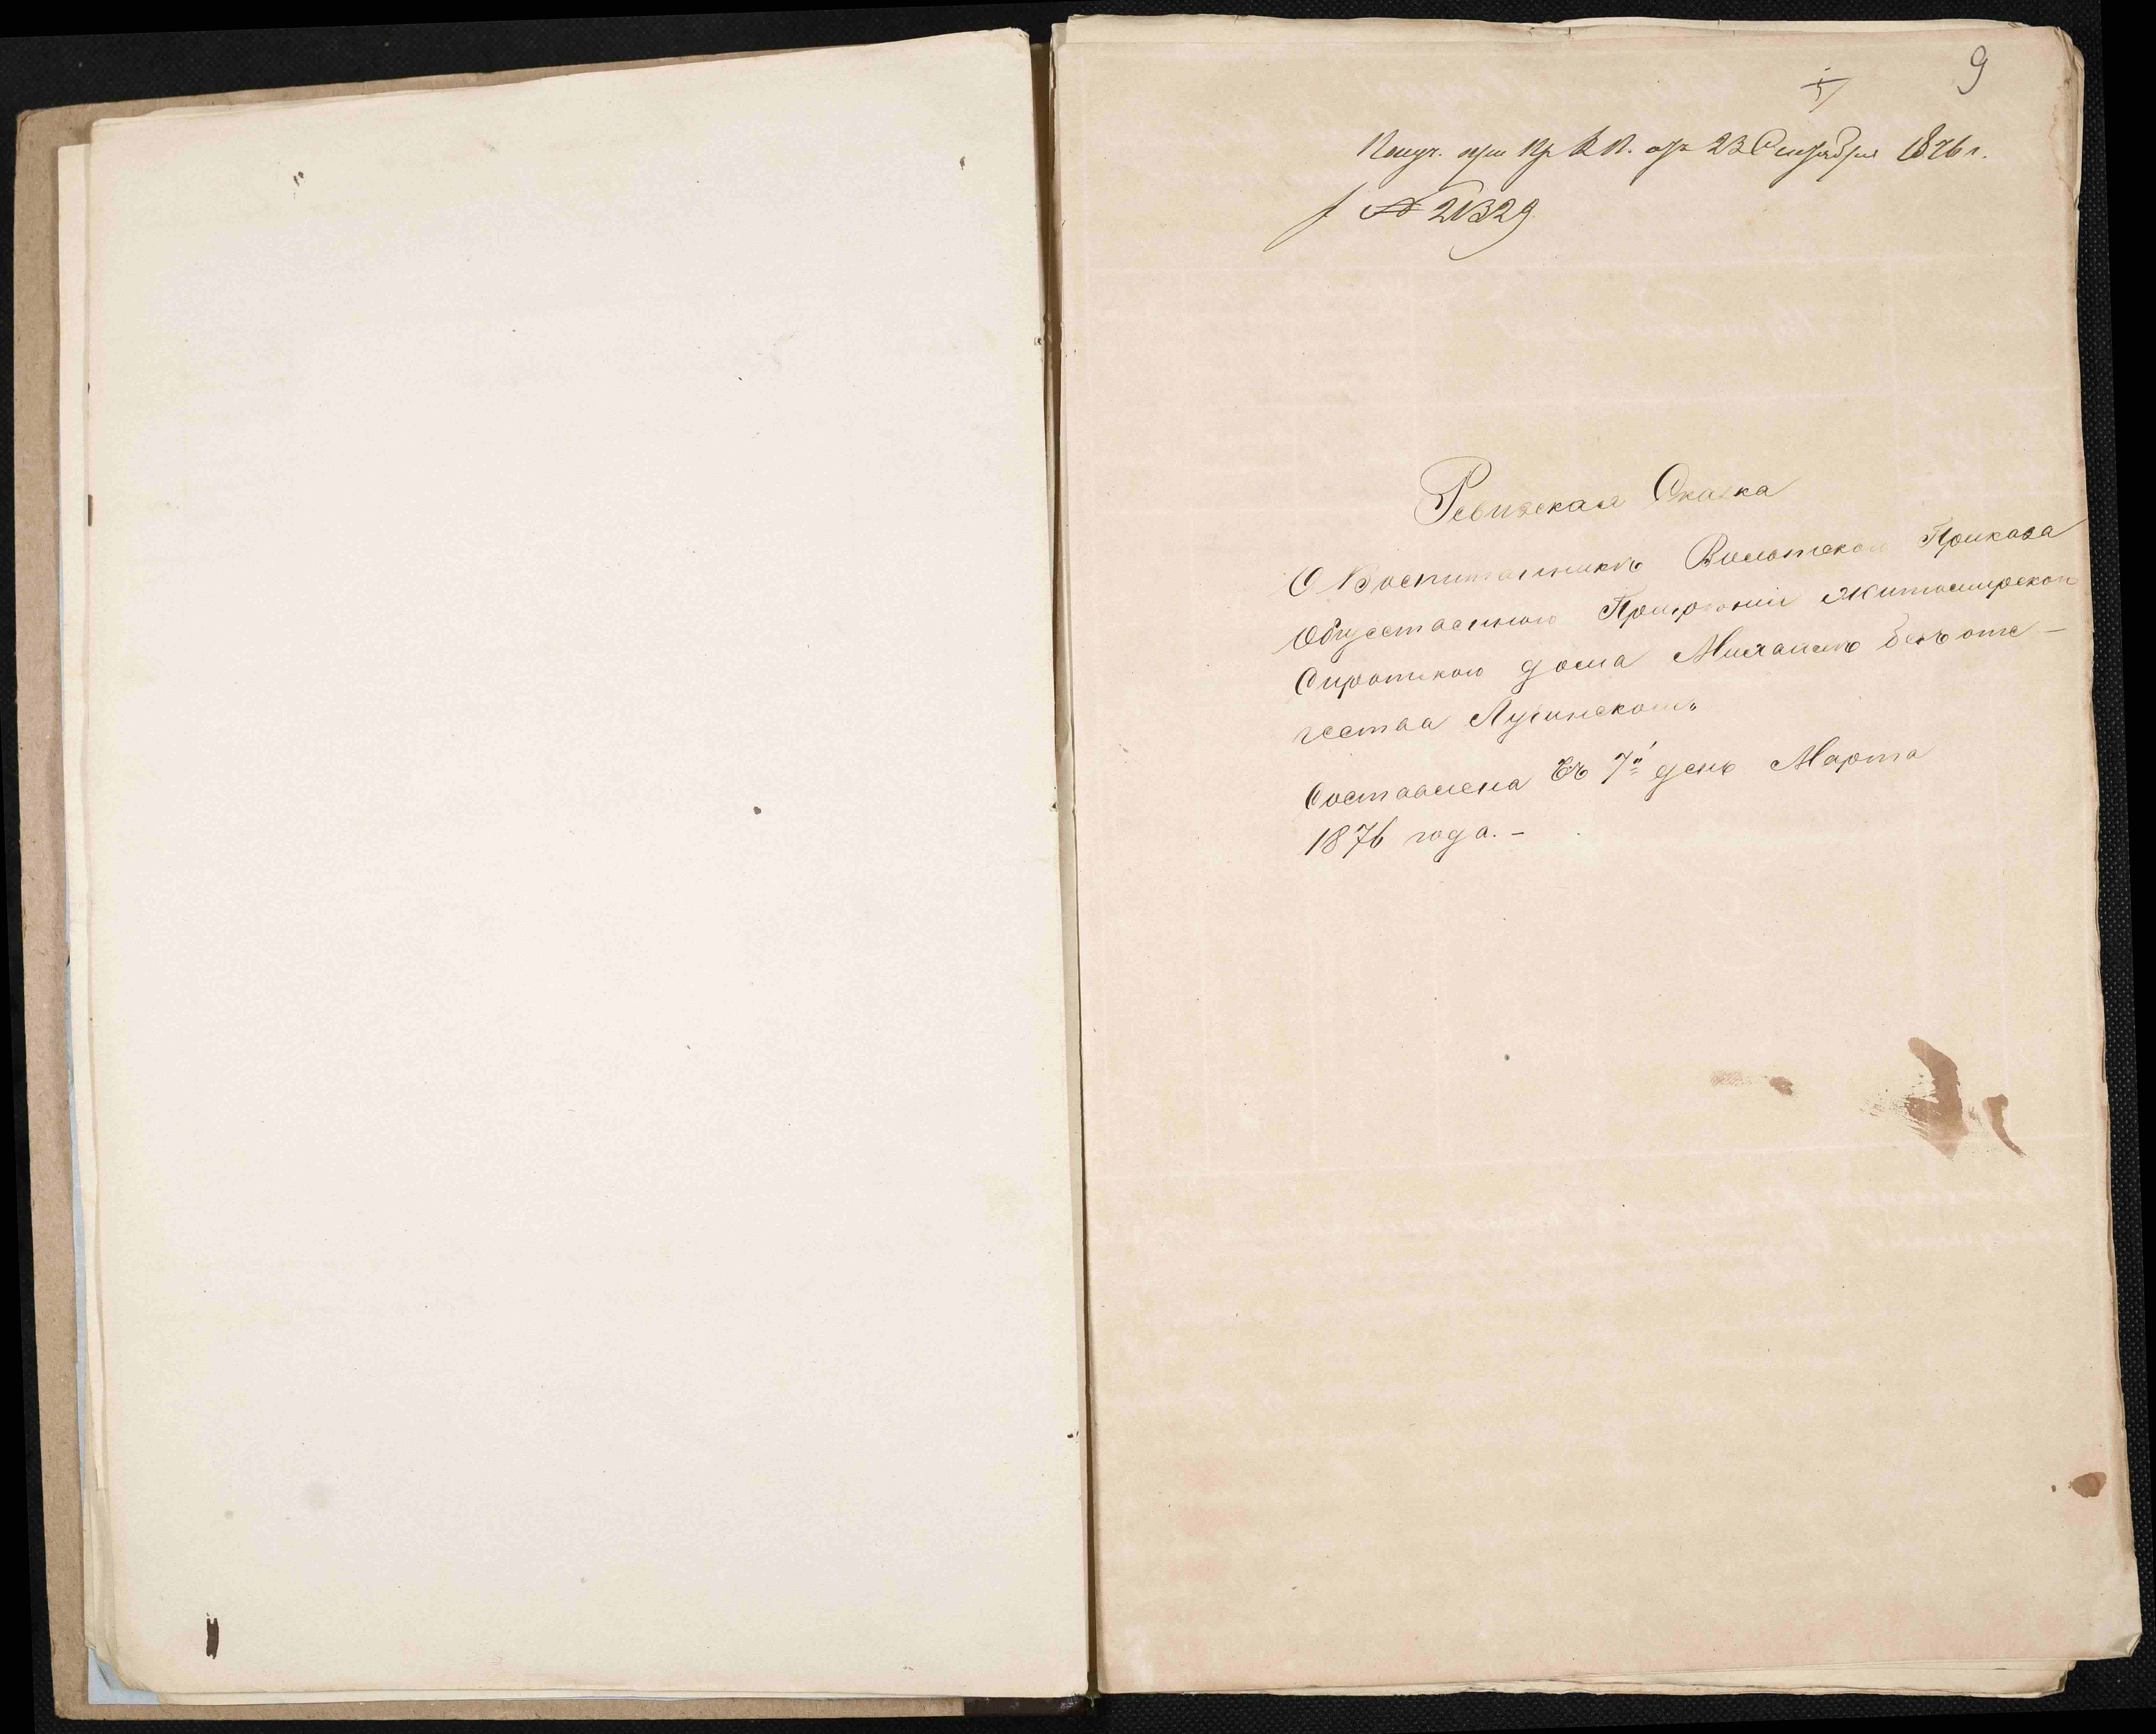 9
Получ. при Пр. К. П. отъ 23 Сентября 1876 г.
№ 21329
Ревизская Сказка
О Воспитанникѣ Волынскаго Приказа
Общественнаго Призрѣнія Житомирскаго
Сиротскаго дома Михаилѣ безъ оте-
чества Лучинскомъ
Составлена въ 7й день Марта
1876 года. -